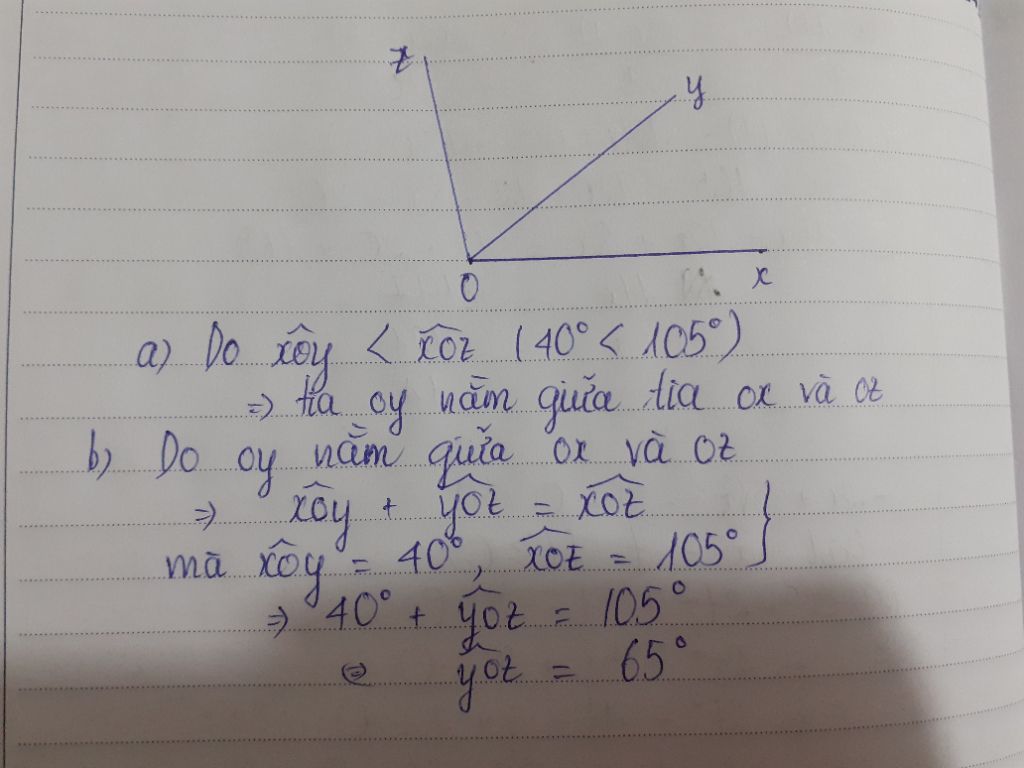 z
y
O
x
a) Do xôy < x̂oz (40° < 105°)
⇒ tia oy nằm giữa tia ox và oz
b) Do oy nằm giữa ox và oz
⇒ xôy + ŷoz = x̂oz }
mà xôy = 40°, x̂oz = 105°
⇒ 40° + ŷoz = 105°
⇔ ŷoz = 65°